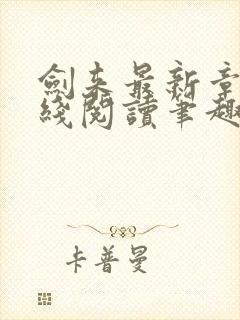 劍来最新章
綫閱讀筆趣
卡普曼